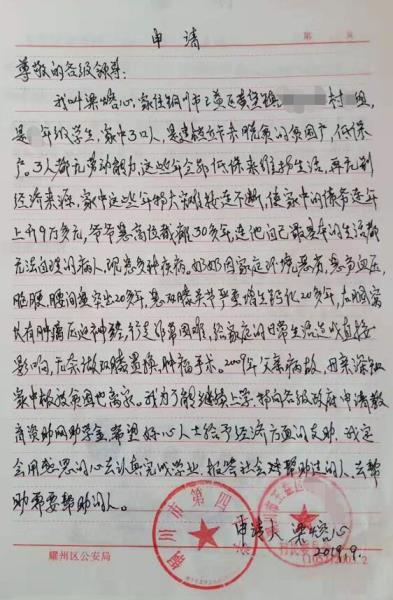 第 页
申请
尊敬的各级领导:
我叫梁 心,家住铜川市王益区黄堡镇 村 组,
是 年级学生,家中3口人,是建档立卡脱贫的贫困户,低保
户。3人都无劳动能力,这些年全部低保来维持生活,再无别
经济来源。家中这些年特大灾难接连不断,使家中的债务连年
上升9万多元,爷爷患高位截瘫30多年,连他自己最基本的生活都
无法自理的病人,现患多种疾病。奶奶因家庭环境恶劣,患高血压,
脑梗,腰间盘突出20多年,患双膝关节严重增生钙化20多年,右腘窝
长有肿瘤压迫神经,行走非常困难,给家庭的日常生活造成直接
影响,无奈做双膝置换,肿瘤手术。2009年父亲病故,母亲深知
家中极被贫困也离家。我为了能继续上学,特向各级政府申请教
育资助网助学金,希望好心人士给予经济方面的支助,我定
会用感恩的心去认真完成学业,报答社会对帮助过的人,去帮
助那要帮助的人。
申请人 梁 心
2019.9.
铜川市第四
耀州区公安局